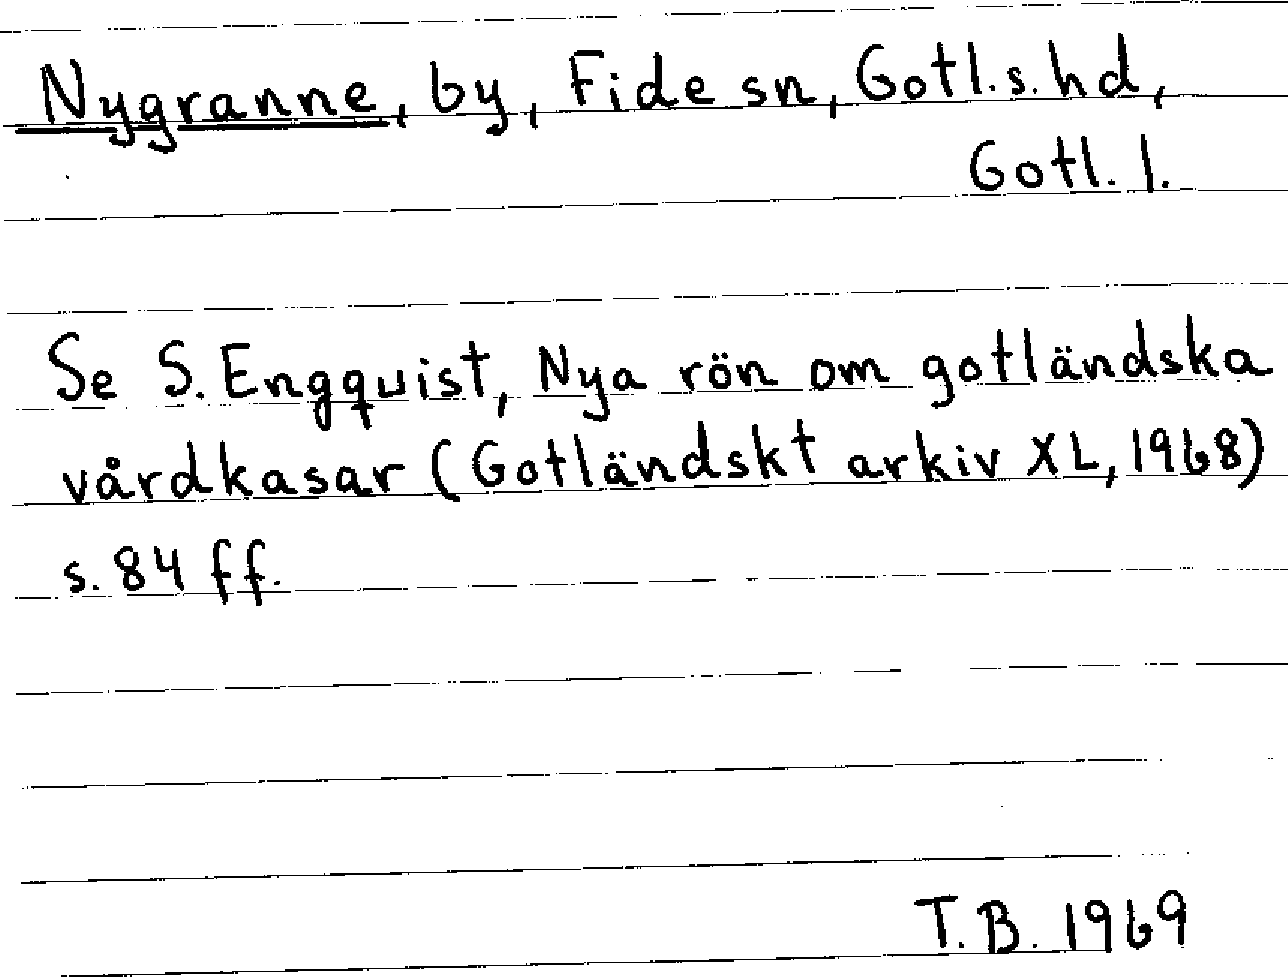 Nygranne, by, Fide sn, Gotl.s. hd,
Gotl. l.
Se S. Engquist, Nya rön om gotländska
vårdkasar (Gotländskt arkiv XL, 1968)
s. 84 ff.
T.B. 1969